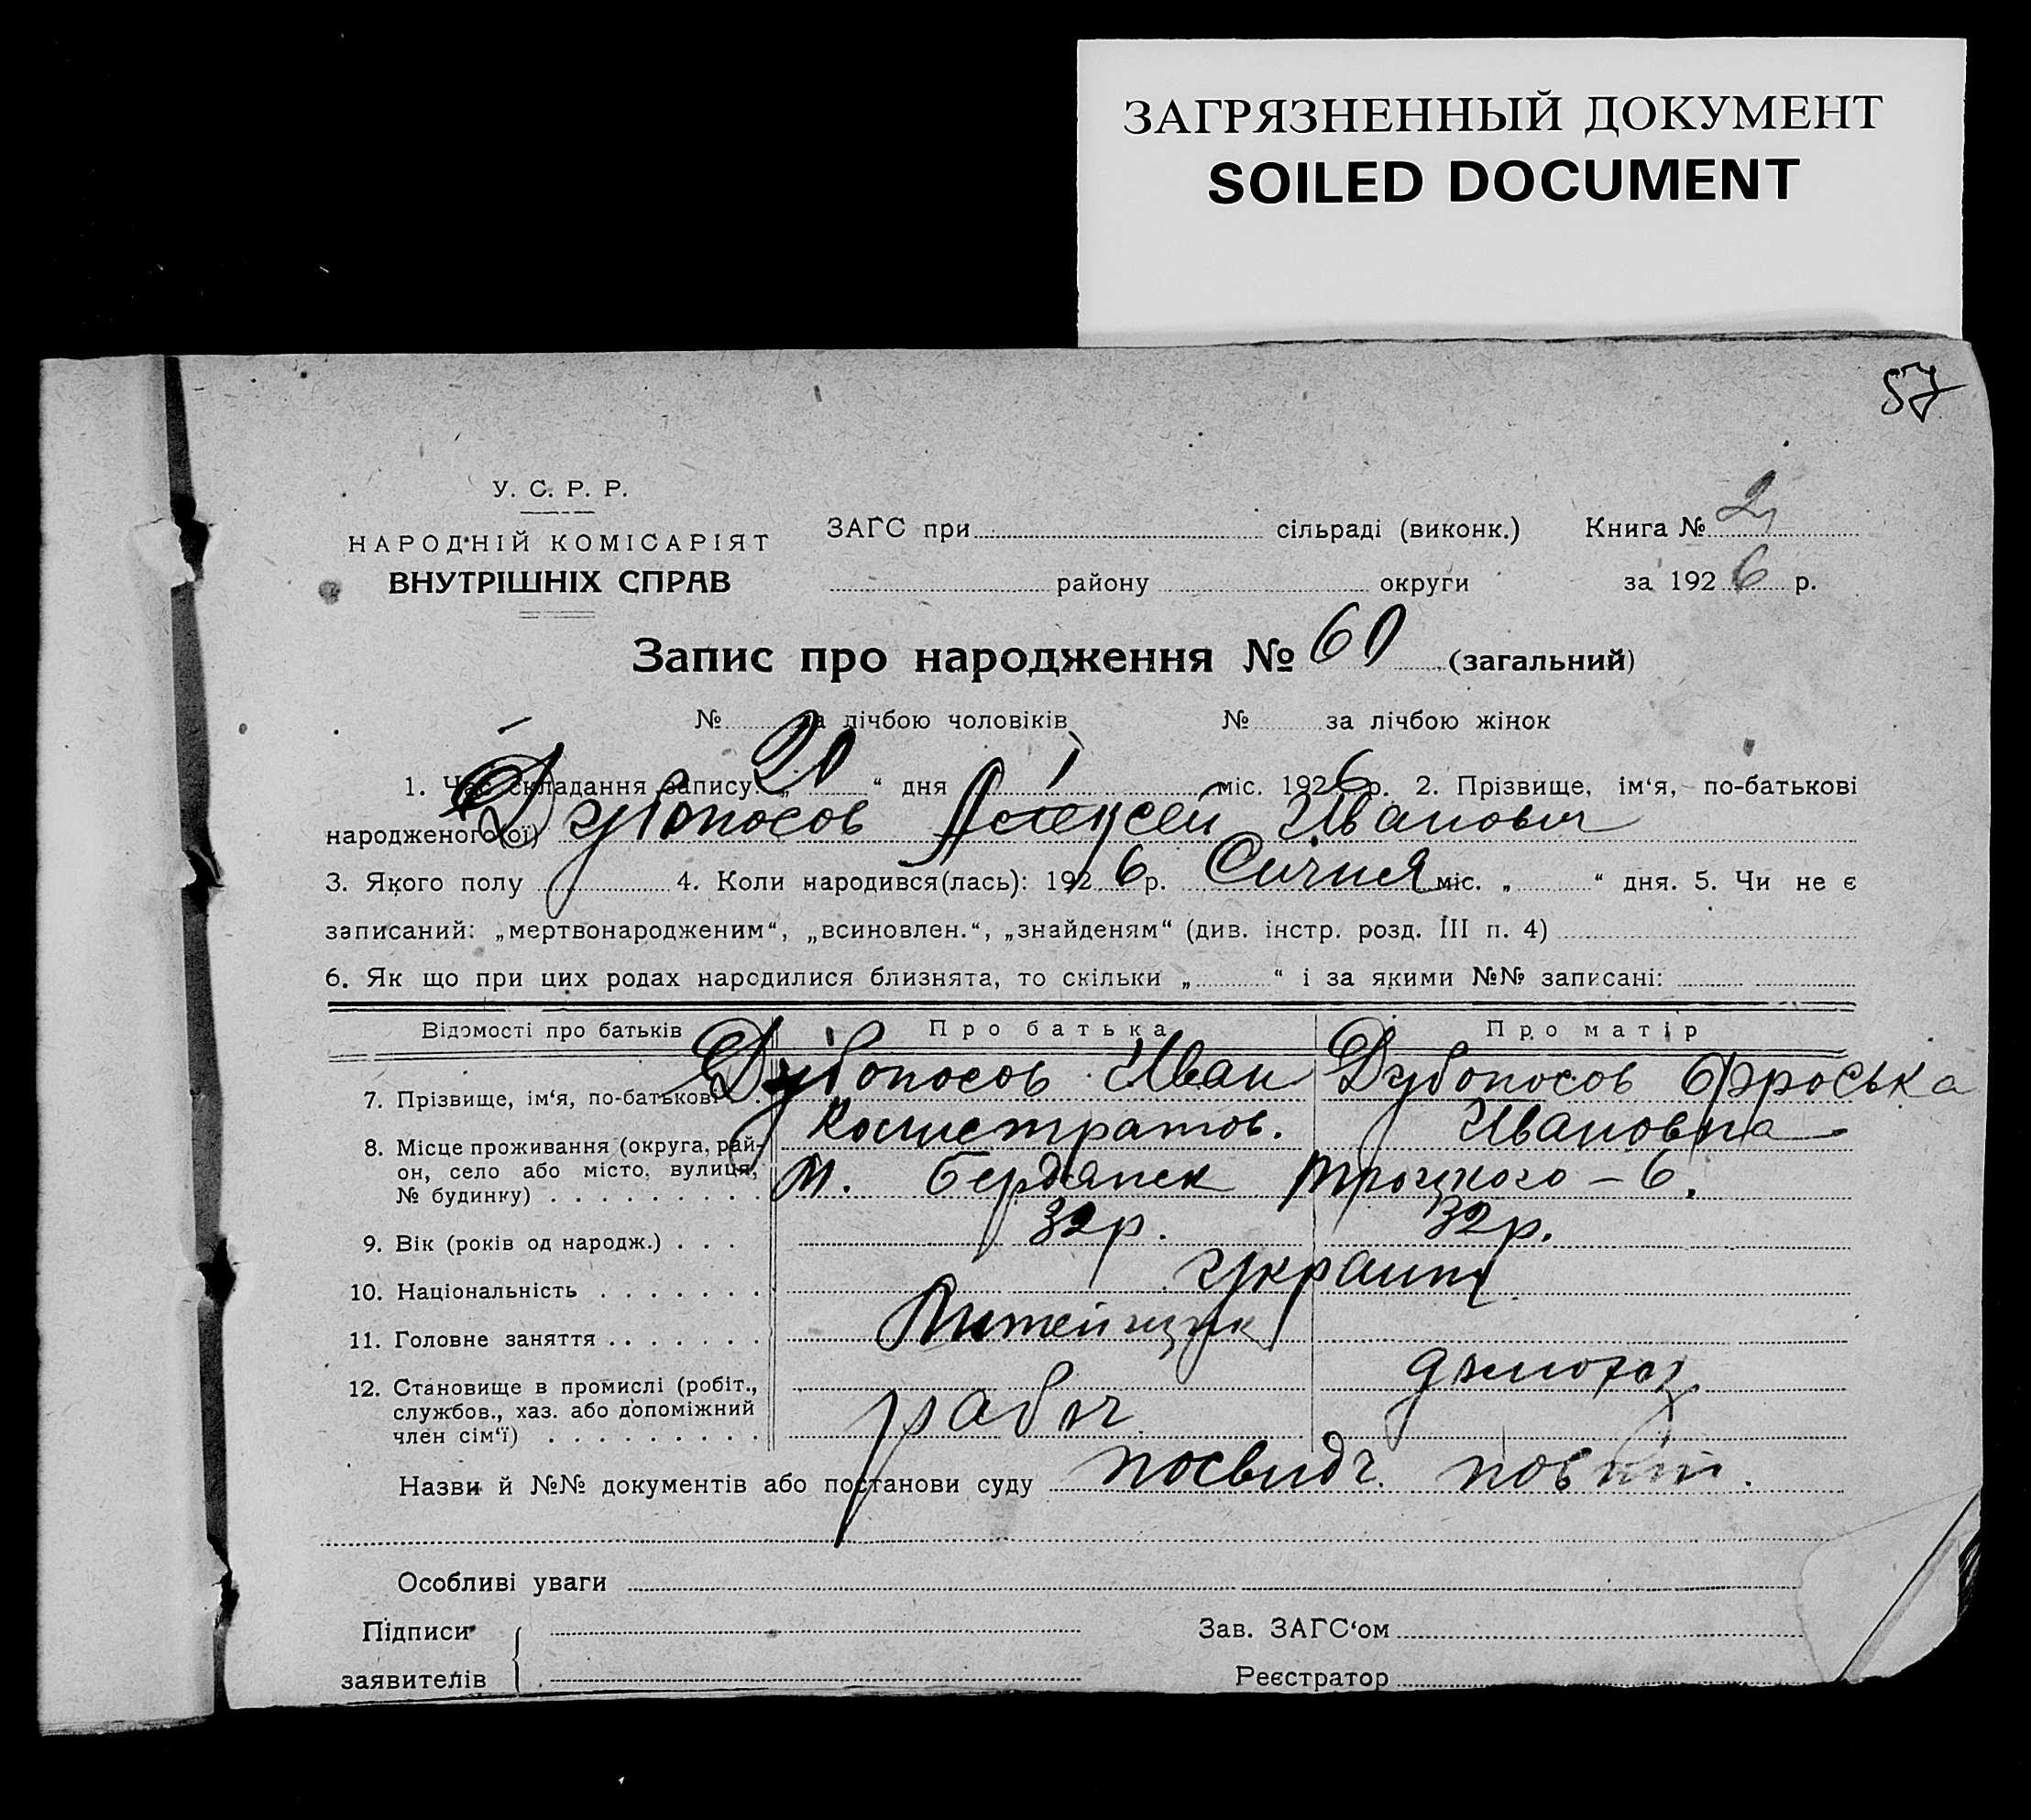 ЗАГРЯЗНЕННЫЙ ДОКУМЕНТ
SOILED DOCUMENT
57
У. С. Р. Р.
НАРОДНІЙ КОМІСАРІЯТ
ВНУТРІШНІХ СПРАВ
ЗАГС при сільраді (виконк.) Книга № 2
району округи за 1926 р.
Запис про народження № 60 (загальний)
№ за лічбою чоловіків № за лічбою жінок
1. Час складання запису: „ 20 “ дня 1 міс. 1926 р. 2. Прізвище, ім‘я, по-батькові
народженого(ої) Дубоносов Алексей Иванович
3. Якого полу 4. Коли народився(лась): 1926 р. Січня міс. „ “ дня. 5. Чи не є
записаний: „мертвонародженим“, „всиновлен.“, „знайденям“ (див. інстр. розд. III п. 4)
6. Як що при цих родах народилися близнята, то скільки „ “ і за якими №№ записані:
Відомості про батьків Про батька Про матір
7. Прізвище, ім‘я, по-батькові Дубоносов Иван Дубоносов Фроська
Ивановна
8. Місце проживання (округа, рай-
он, село або місто, вулиця,
№ будинку) м. Бердянск Троцкого – 6.
9. Вік (років од народж.) 32 р. 32 р.
10. Національність Украинц
11. Головне заняття Литейщик
12. Становище в промислі (робіт.,
службов., хаз. або допоміжний
член сім‘ї) рабоч
Назви й №№ документів або постанови суду посвидч.
Особливі уваги
Підписи Зав. ЗАГС‘ом
заявителів Реєстратор